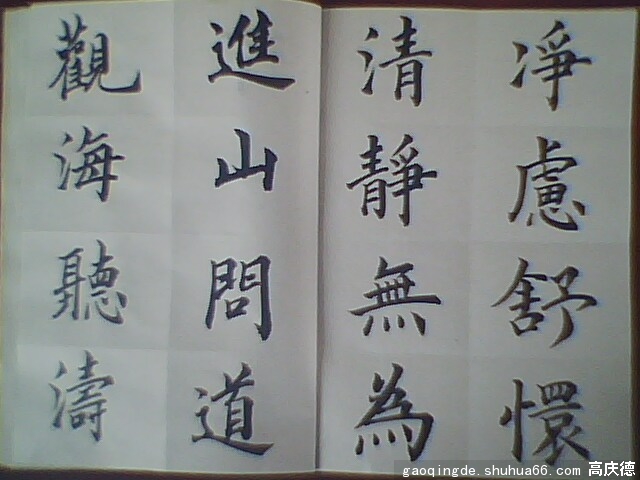 凈慮舒懷
清靜無為
進山問道
觀海聽濤
gaoqingde.shuhua66.com 高庆德